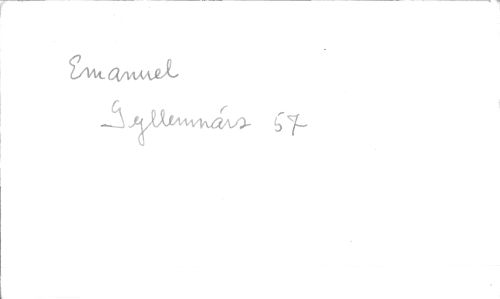 Emanuel
Gyllennárs 57